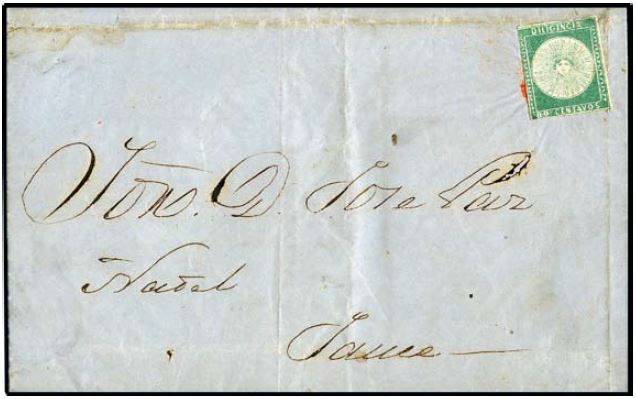 DILIGENCIA
60 CENTAVOS
Señ. D. Jose Paz
Nadal
Sauce